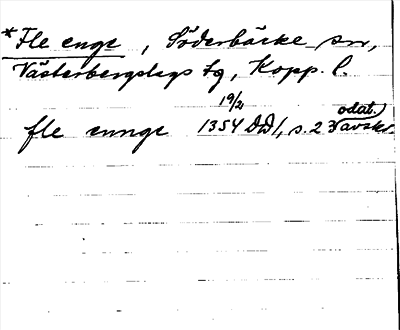 *Fle enge, Söderbärke sn,
Västerbergslags tg, Kopp. l.
fle ennge 19/2 1354 DD1, s. 23 odat. avskr.